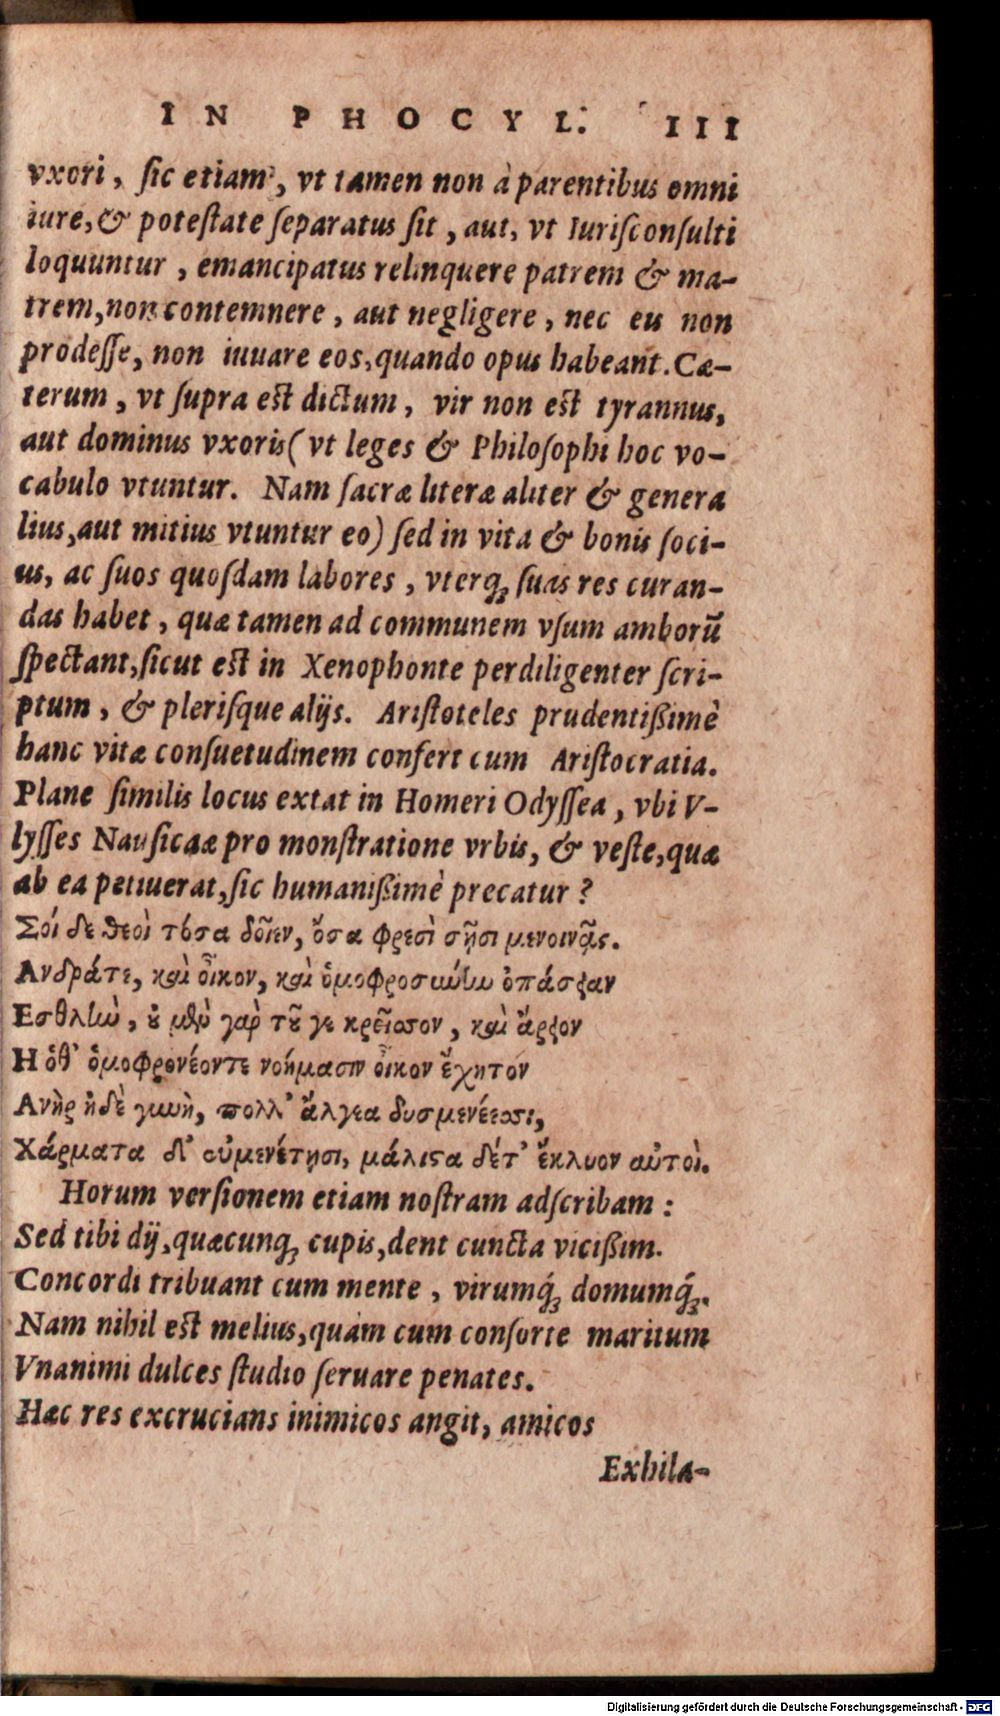 IN PHOCYL. III
vxori, ſic etiam, vt tamen non à parentibus omni
iure, & poteſtate ſeparatus ſit, aut, vt Iuriſconſulti
loquuntur, emancipatus relinquere patrem & ma-
trem, non contemnere, aut negligere, nec eis non
prodeſſe, non iuuare eos, quando opus habeant. Cæ-
terum, vt ſupra eſt dictum, vir non eſt tyrannus,
aut dominus vxoris (vt leges & Philoſophi hoc vo-
cabulo vtuntur. Nam ſacræ literæ aliter & genera
lius, aut mitius vtuntur eo) ſed in vita & bonis ſoci-
us, ac ſuos quoſdam labores, vterq; ſuas res curan-
das habet, quæ tamen ad communem vſum amborũ
ſpectant, ſicut eſt in Xenophonte perdiligenter ſcri-
ptum, & pleriſque alijs. Ariſtoteles prudentißimè
hanc vitæ conſuetudinem confert cum Ariſtocratia.
Plane ſimilis locus extat in Homeri Odyſſea, vbi V-
lyſſes Nauſicaæ pro monſtratione vrbis, & veſte, quæ
ab ea petiuerat, ſic humanißimè precatur?
Σοί δε θεοὶ τόσα δοῖεν, ὅσα φρεσὶ σῇσι μενοινᾷς.
Ανδράτε, καὶ οἶκον, καὶ ὁμοφροσώύην ὀπάσειαν
Εσθλὴν, ȣ μὲν γαρ τοῦ γε κρεῖσσον, καὶ ἄρειον
Η ὅθ' ὁμοφρονέοντε νοήμασιν οἶκον ἔχητόν
Ανὴρ ἠδὲ γυνὴ, πολλ' ἄλγεα δυσμενέεσσι,
Χάρματα δ' εὐμενέτῃσι, μάλιϛα δέτ' ἔκλυον αὐτοὶ.
Horum verſionem etiam noſtram adſcribam:
Sed tibi dij, quæcunq; cupis, dent cuncta vicißim.
Concordi tribuant cum mente, virumq́; domumq́;.
Nam nihil eſt melius, quàm cum conſorte maritum
Vnanimi dulces ſtudio ſeruare penates.
Hæc res excrucians inimicos angit, amicos
Exhila-
Digitalisierung gefördert durch die Deutsche Forschungsgemeinschaft - DFG